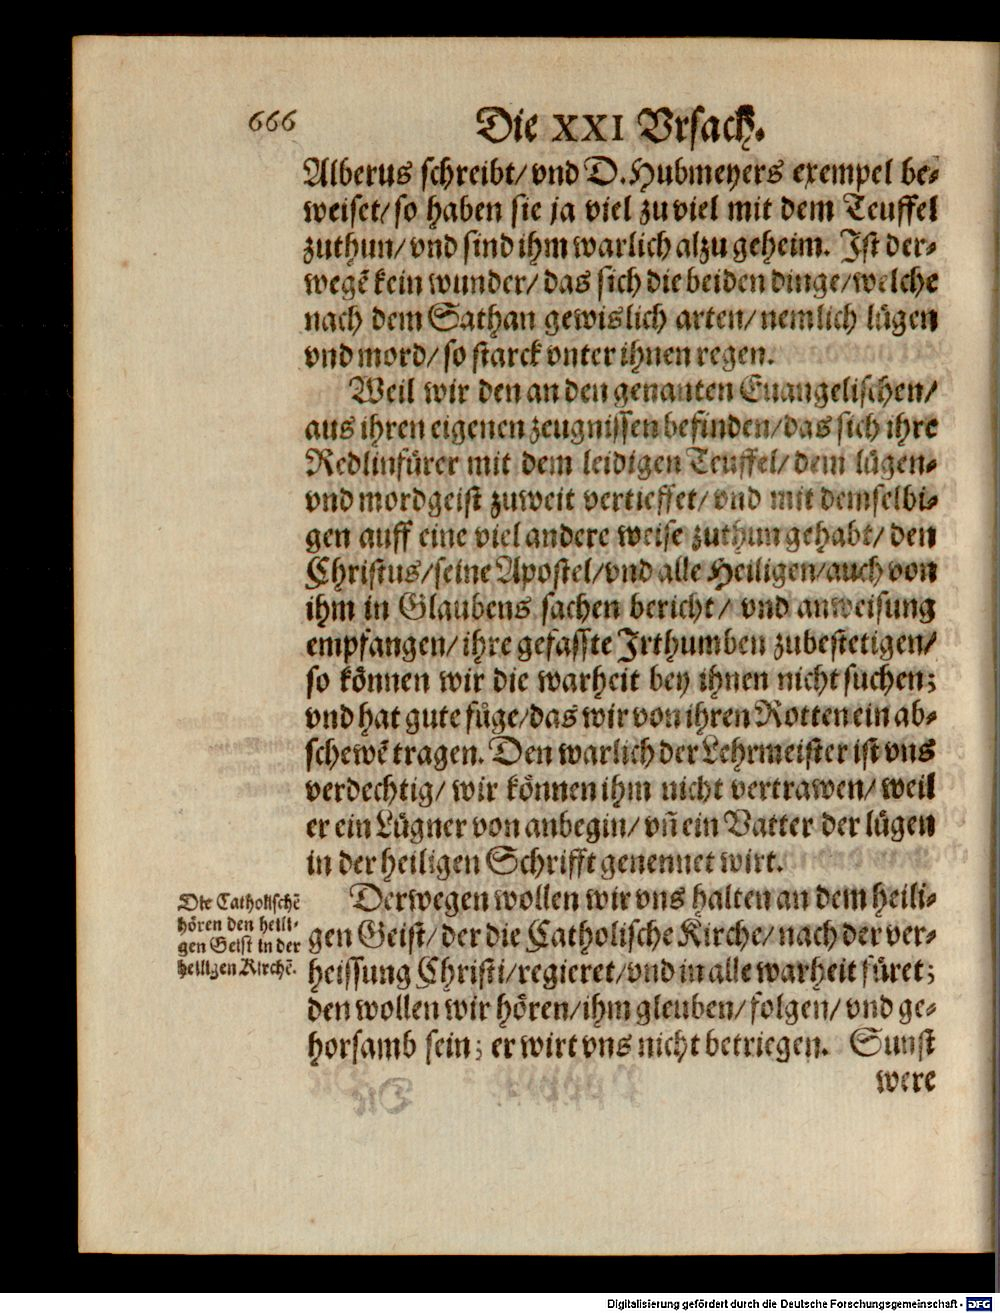 666
Die XXI Vrsach.
Alberus schreibt/ vnd D. Hubmeyers exempel be-
weiset/ so haben sie ja viel zu viel mit dem Teuffel
zuthun/ vnd sind ihm warlich alzu geheim. Ist der-
wegẽ kein wunder/ das sich die beiden dinge/ welche
nach dem Sathan gewislich arten/ nemlich lügen
vnd mord/ so starck vnter ihnen regen.
Weil wir den an den genanten Euangelischen/
aus ihren eigenen zeugnissen befinden/ das sich ihre
Redlinfürer mit dem leidigen Teuffel/ dem lügen-
vnd mordgeist zuweit vertieffet/ vnd mit demselbi-
gen auff eine viel andere weise zuthun gehabt/ den
Christus/ seine Apostel/ vnd alle Heiligen/ auch von
ihm in Glaubens sachen bericht/ vnd anweisung
empfangen/ ihre gefasste Irthumben zubestetigen/
so können wir die warheit bey ihnen nicht suchen;
vnd hat gute füge/ das wir von ihren Rotten ein ab-
schewẽ tragen. Den warlich der Lehrmeister ist vns
verdechtig/ wir können ihm nicht vertrawen/ weil
er ein Lügner von anbegin/ vñ ein Vatter der lügen
in der heiligen Schrifft genennet wirt.
Die Catholischẽ
hören den heili-
gen Geist in der
heiligen Kirchẽ.
Derwegen wollen wir vns halten an dem heili-
gen Geist/ der die Catholische Kirche/ nach der ver-
heissung Christi/ regieret/ vnd in alle warheit füret;
den wollen wir hören/ ihm gleuben/ folgen/ vnd ge-
horsamb sein; er wirt vns nicht betriegen. Sunst
were
Digitalisierung gefördert durch die Deutsche Forschungsgemeinschaft - DFG